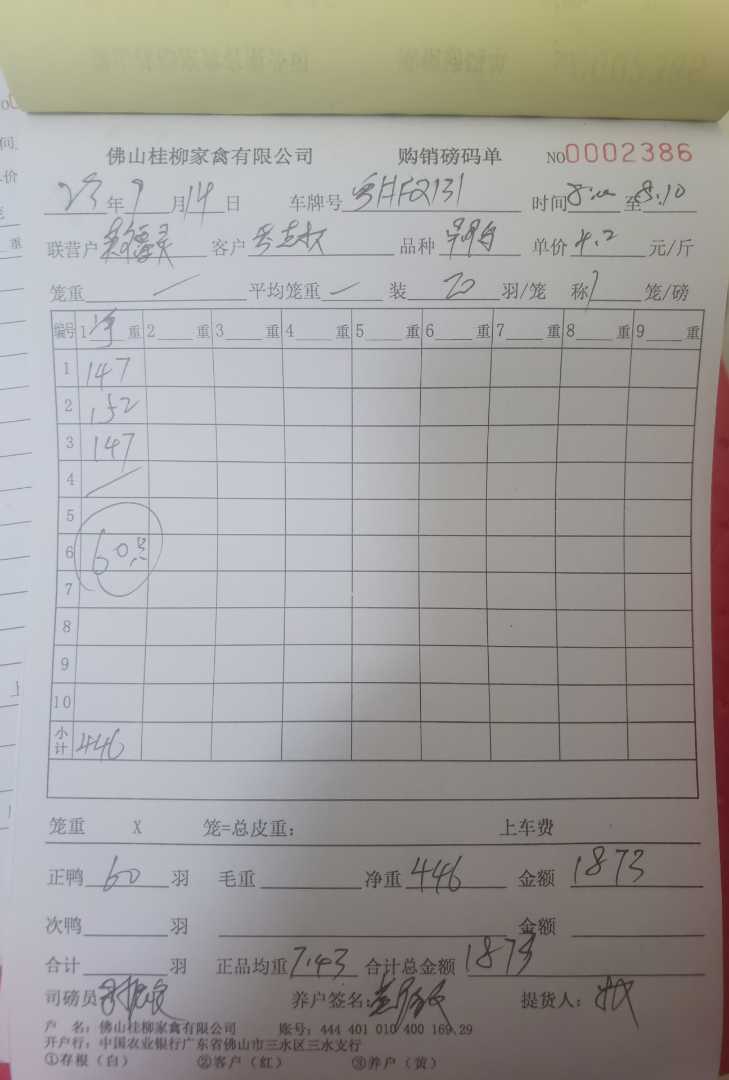 佛山桂柳家禽有限公司 购销磅码单 NO0002386
23年9月14日 车牌号 粤HF2131 时间8:00至8:10
联营户 客户 品种 单价4.2元/斤
笼重 — 平均笼重 — 装20羽/笼 称1笼/磅
编号 1净重 2 重 3 重 4 重 5 重 6 重 7 重 8 重 9 重
1 147
2 152
3 147
4
5
6 60只
7
8
9
10
小计 446
笼重 X 笼=总皮重: 上车费
正鸭60羽 毛重 净重446 金额1873
次鸭 羽 金额
合计 羽 正品均重7.43 合计总金额1873
司磅员 养户签名: 提货人:
户 名: 佛山桂柳家禽有限公司 账号: 444 401 010 400 169 29
开户行: 中国农业银行广东省佛山市三水区三水支行
①存根(白) ②客户(红) ③养户(黄)